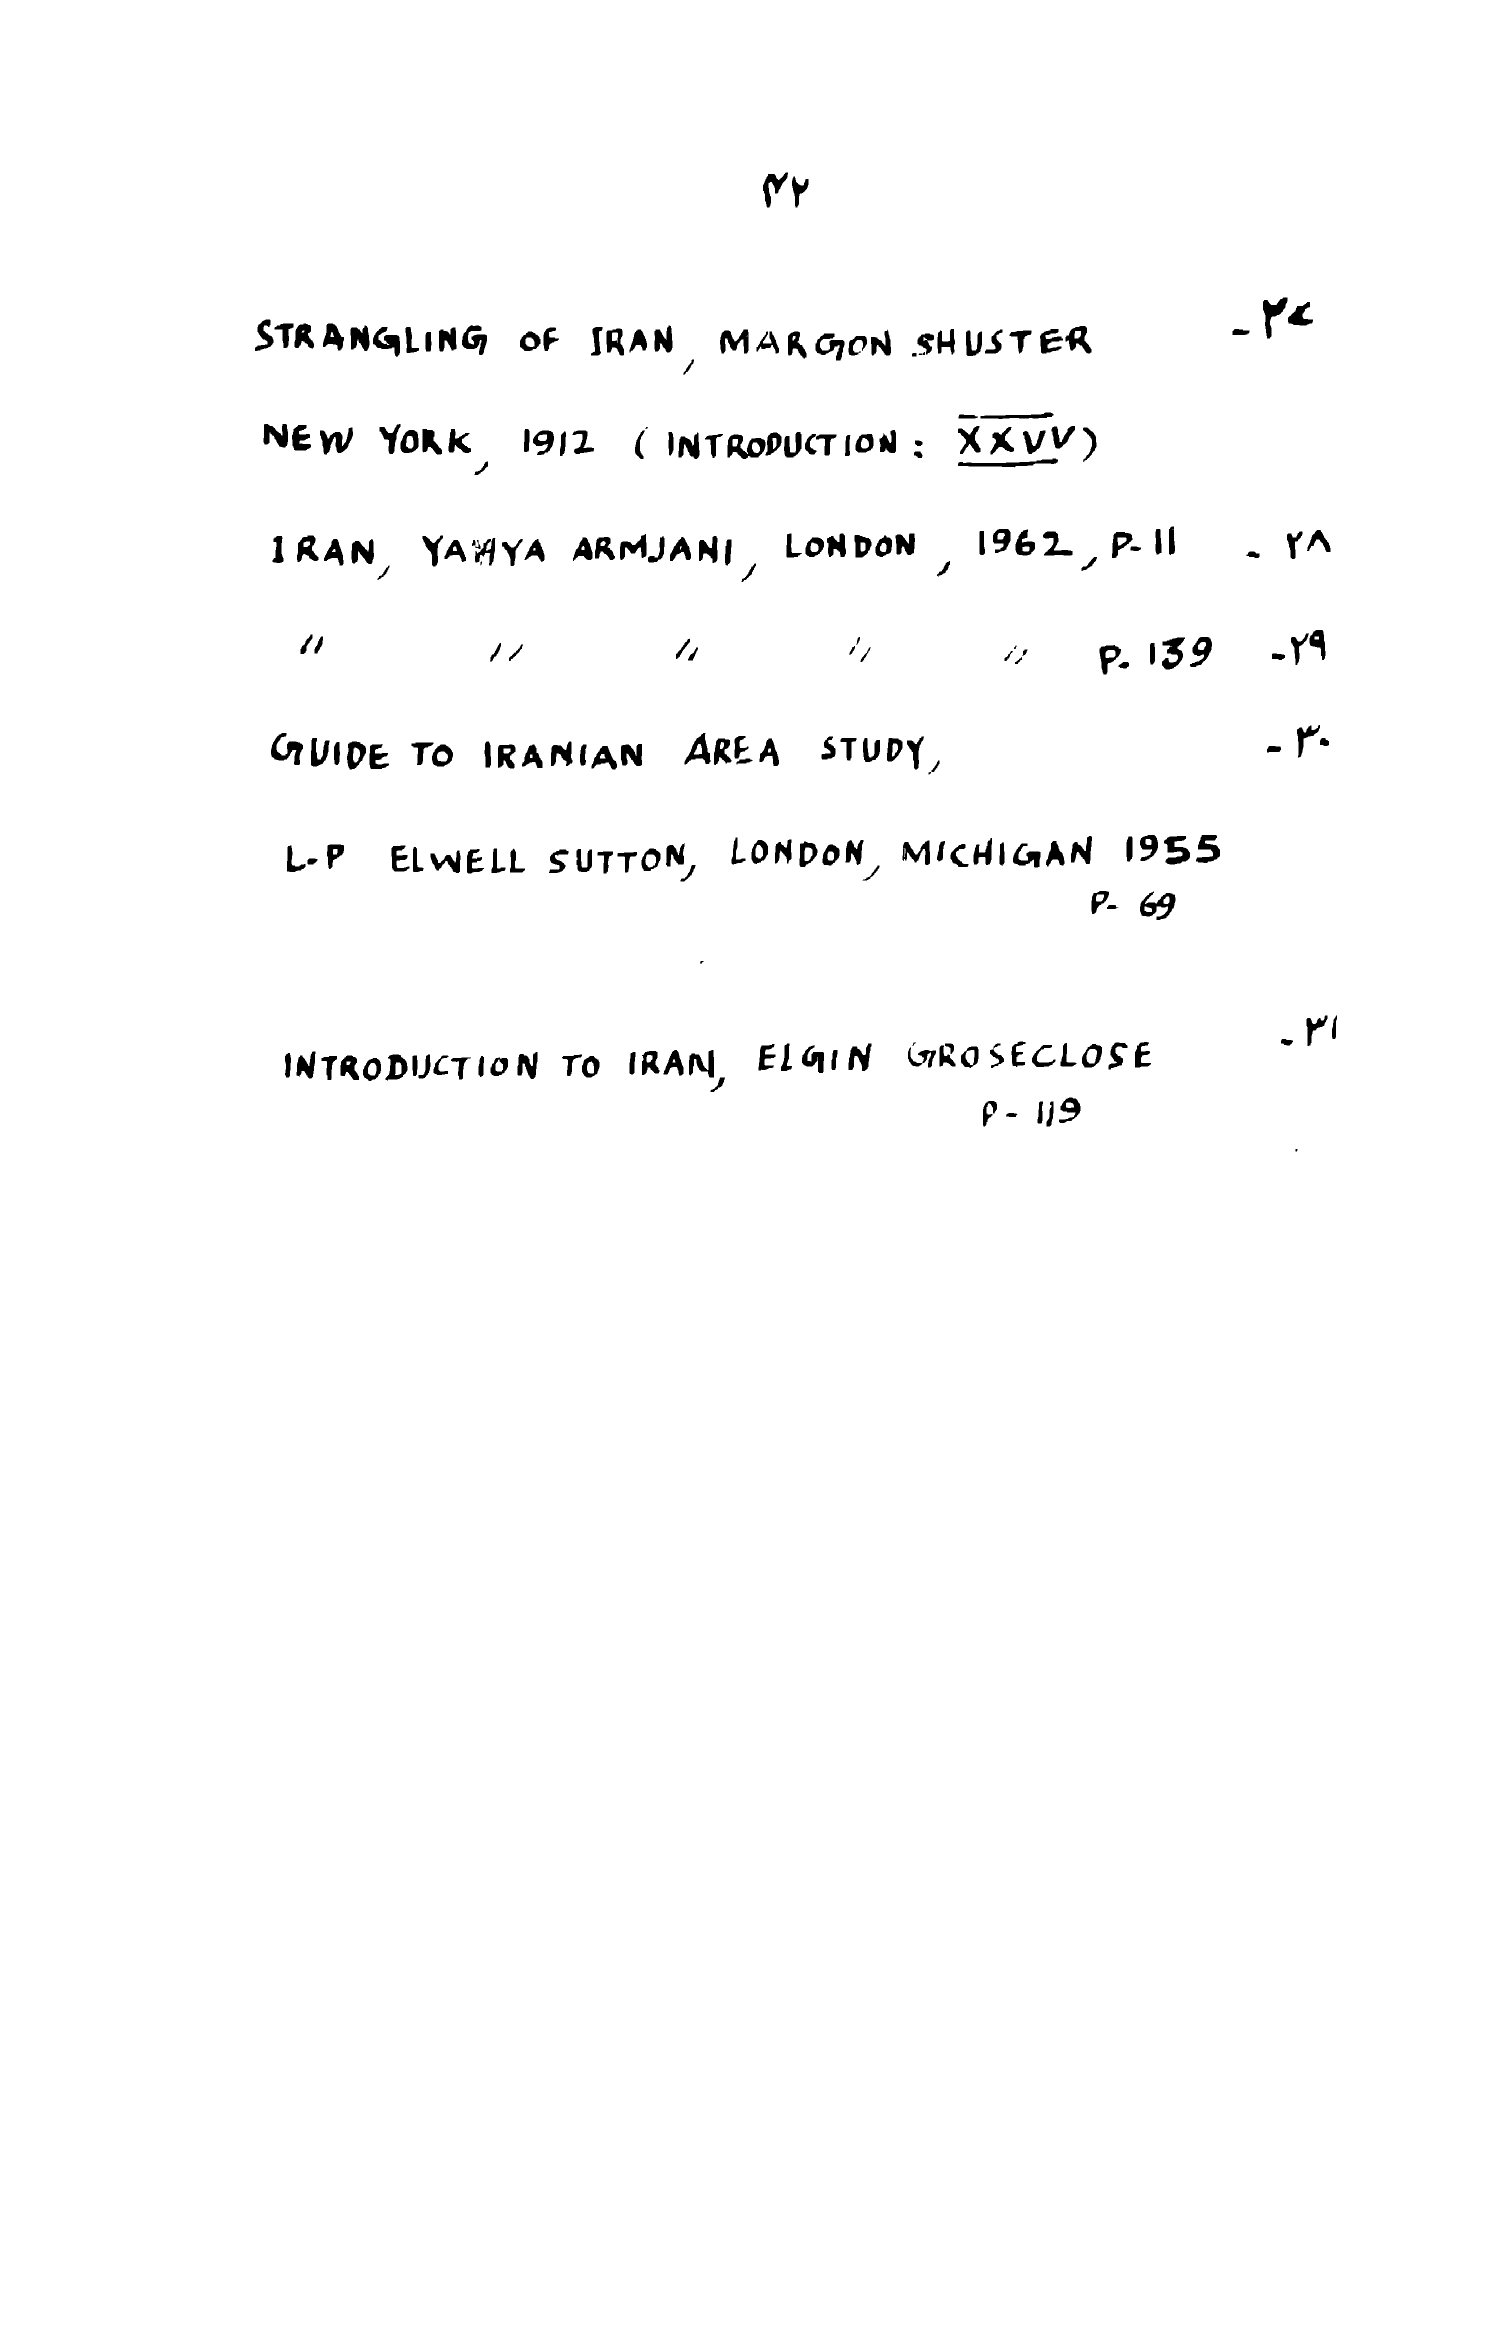 ۳۲
STRANGLING OF IRAN, MARGON SHUSTER -۲۷
NEW YORK, 1912 (INTRODUCTION: XXVV)
IRAN, YAHYA ARMJANI, LONDON, 1962, P-11 -۲۸
" " " " " P. 139 -۲۹
GUIDE TO IRANIAN AREA STUDY, -۳۰
L-P ELWELL SUTTON, LONDON, MICHIGAN 1955
P- 69
INTRODUCTION TO IRAN, ELGIN GROSECLOSE -۳۱
P- 119